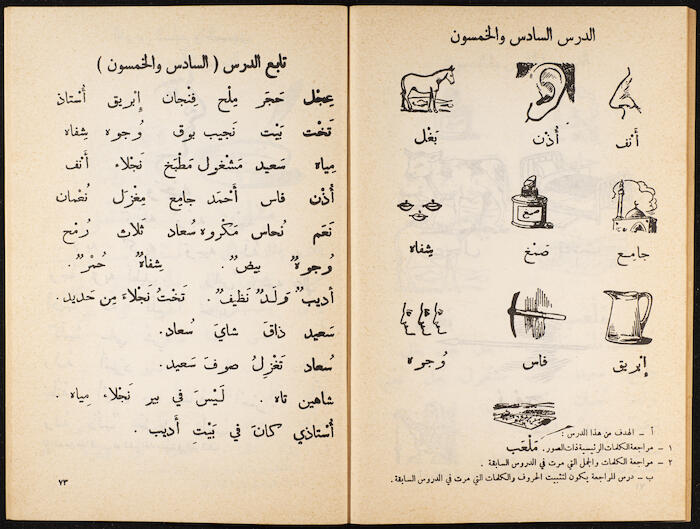 الدرس السادس والخمسون
أَنْف أُذْن بَغْل
جامِع صَمْغ شِفاه
صمغ
إبْريق فاس وُجوه
مَلْعَب
أ – الهدف من هذا الدرس :
١ – مراجعة الكلمات الرئيسية ذات الصور.
٢ – مراجعة الكلمات والجمل التي مرت في الدروس السابقة .
ب – درس المراجعة يكون لتثبيت الحروف والكلمات التي مرت في الدروس السابقة .
تابع الدرس ( السادس والخمسون )
عِجْل حَجَر مِلْح فِنْجان إبْريق أُسْتاذ
تَخْت بَيْت نَجيب بوق وُجوه شِفاه
مِياه سَعيد مَشْغول مَطْبَخ نَجْلاء أَنْف
أُذْن فاس أَحْمَد جامِع مِغْزَل نُعْمان
نَعَم نُحاس مَكْروه سُعاد ثَلاث رُمْح
وُجوهٌ بيضٌ . شِفاهٌ حُمْرٌ .
أديبٌ وَلَدٌ نَظيفٌ . تَخْتُ نَجْلاءَ مِن حَديد .
سَعيد ذاقَ شايَ سُعاد.
سُعاد تَغْزِلُ صوفَ سَعيد.
شاهين تاه . لَيْسَ في بير نَجْلاء مِياه .
أُسْتاذي كانَ في بَيْتِ أَديب .
٧٣